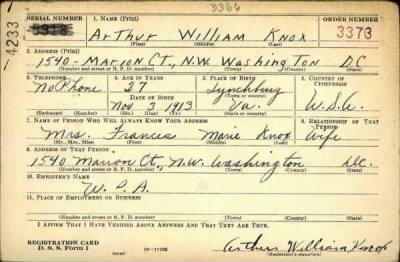 3366
SERIAL NUMBER 1. NAME (Print) ORDER NUMBER
4233 Arthur William Knox 3373
(First) (Middle) (Last)
2. ADDRESS (Print)
1540- Marion Ct., N.W. Washington D.C.
(Number and street or R. F. D. number) (Town) (County) (State)
3. TELEPHONE 4. AGE IN YEARS 5. PLACE OF BIRTH 6. COUNTRY OF CITIZENSHIP
No Phone 27 Lynchburg
DATE OF BIRTH (Town or county)
Nov 3 1913 Va. U.S.A.
(Exchange) (Number) (Mo.) (Day) (Yr.) (State or country)
7. NAME OF PERSON WHO WILL ALWAYS KNOW YOUR ADDRESS 8. RELATIONSHIP OF THAT PERSON
Mrs. Frances Marie Knox Wife
(Mr., Mrs., Miss) (First) (Middle) (Last)
9. ADDRESS OF THAT PERSON
1540 Marion Ct., N.W. Washington D.C.
(Number and street or R. F. D. number) (Town) (County) (State)
10. EMPLOYER'S NAME
W. P. A.
11. PLACE OF EMPLOYMENT OR BUSINESS
(Number and street or R. F. D. number) (Town) (County) (State)
I AFFIRM THAT I HAVE VERIFIED ABOVE ANSWERS AND THAT THEY ARE TRUE.
REGISTRATION CARD
D. S. S. Form 1 (over) Arthur William Knox
(Registrant's signature)